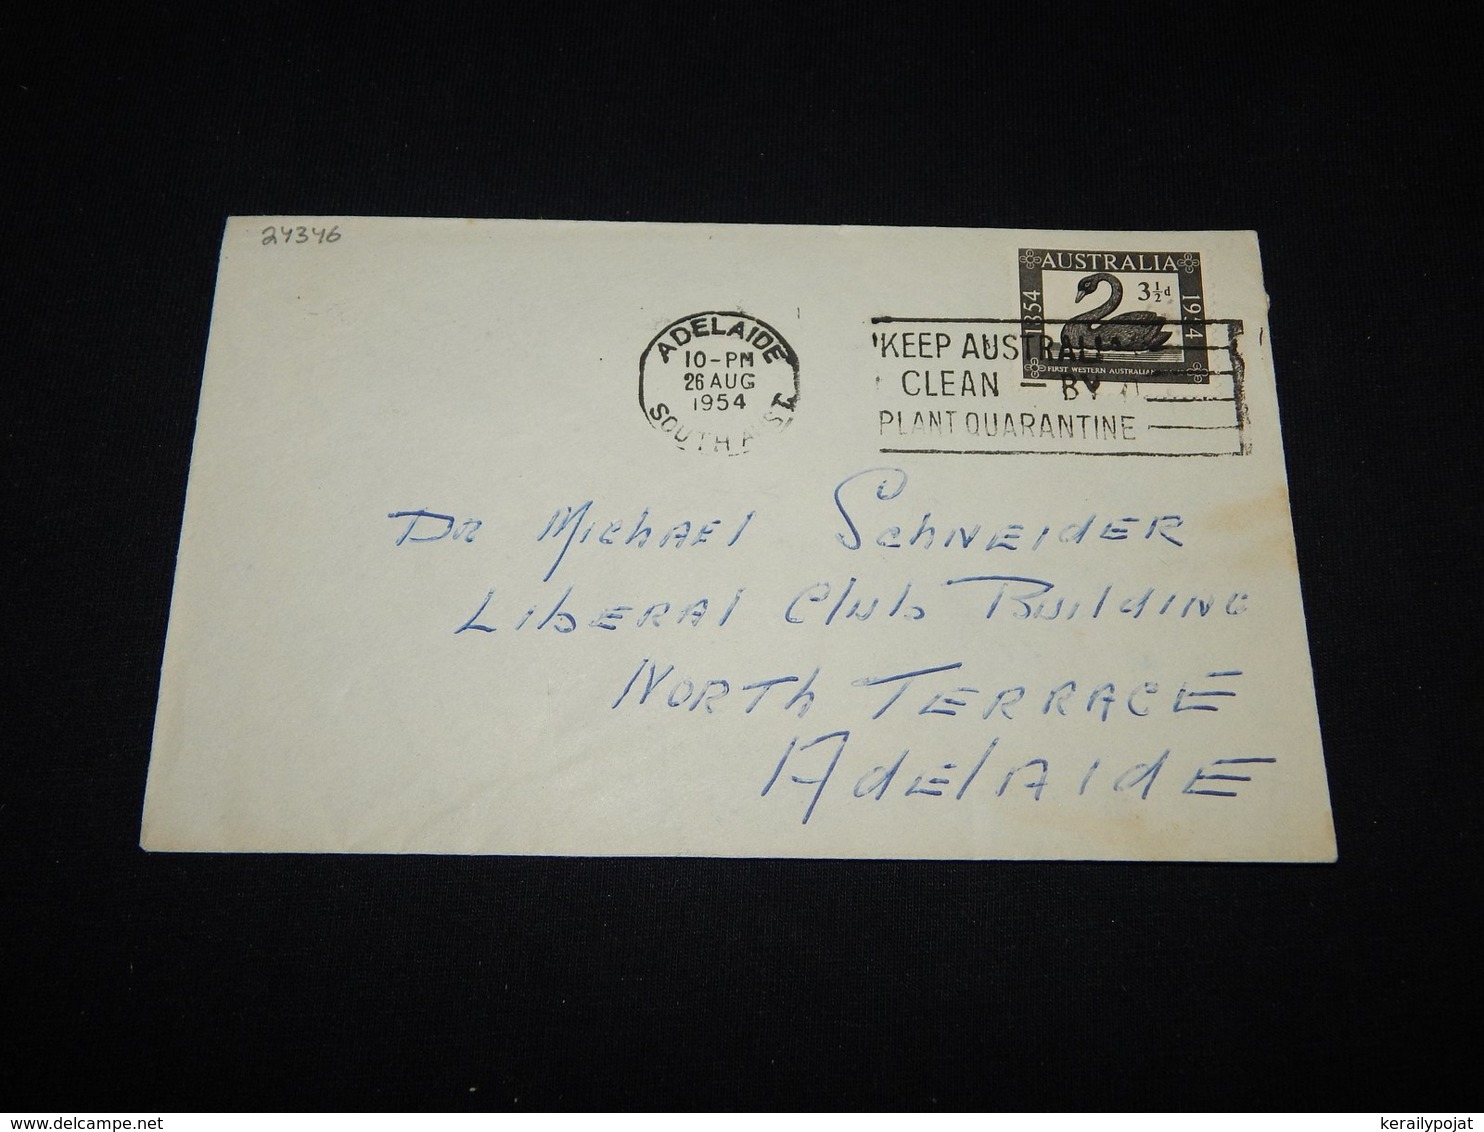 24346
AUSTRALIA
3½d
1854
1954
FIRST WESTERN AUSTRALIAN
ADELAIDE
10-PM
26 AUG
1954
SOUTH AUST
KEEP AUSTRALI
CLEAN - BY
PLANT QUARANTINE
DR MichAEl SchNEidER
LibERAl Club BuildiNG
NORTh TERRACE
AdElAidE
www.delcampe.net
kerailypojat